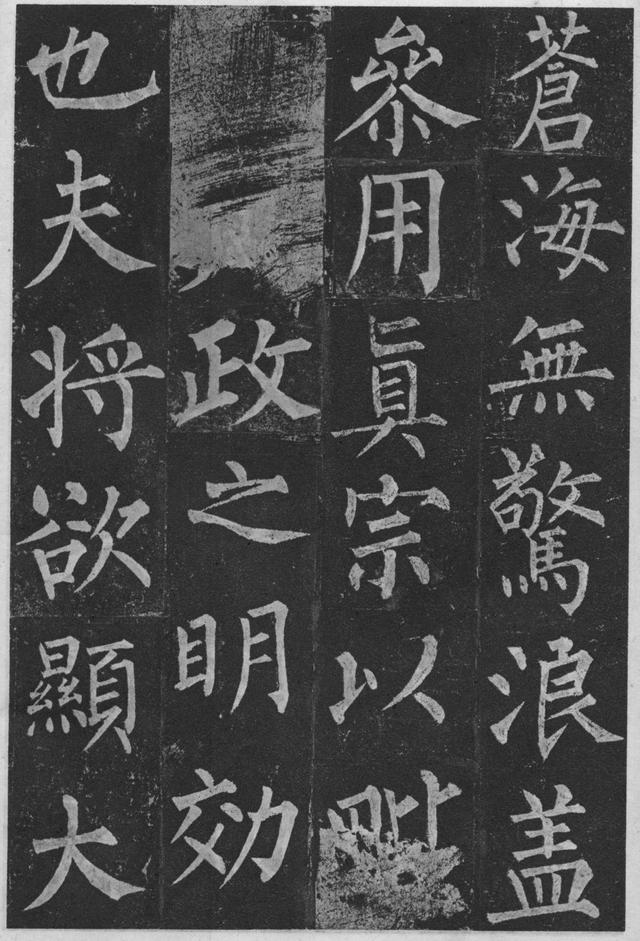 蒼海無驚浪盖
參用真宗以毗
政之明効
也夫将欲顯大